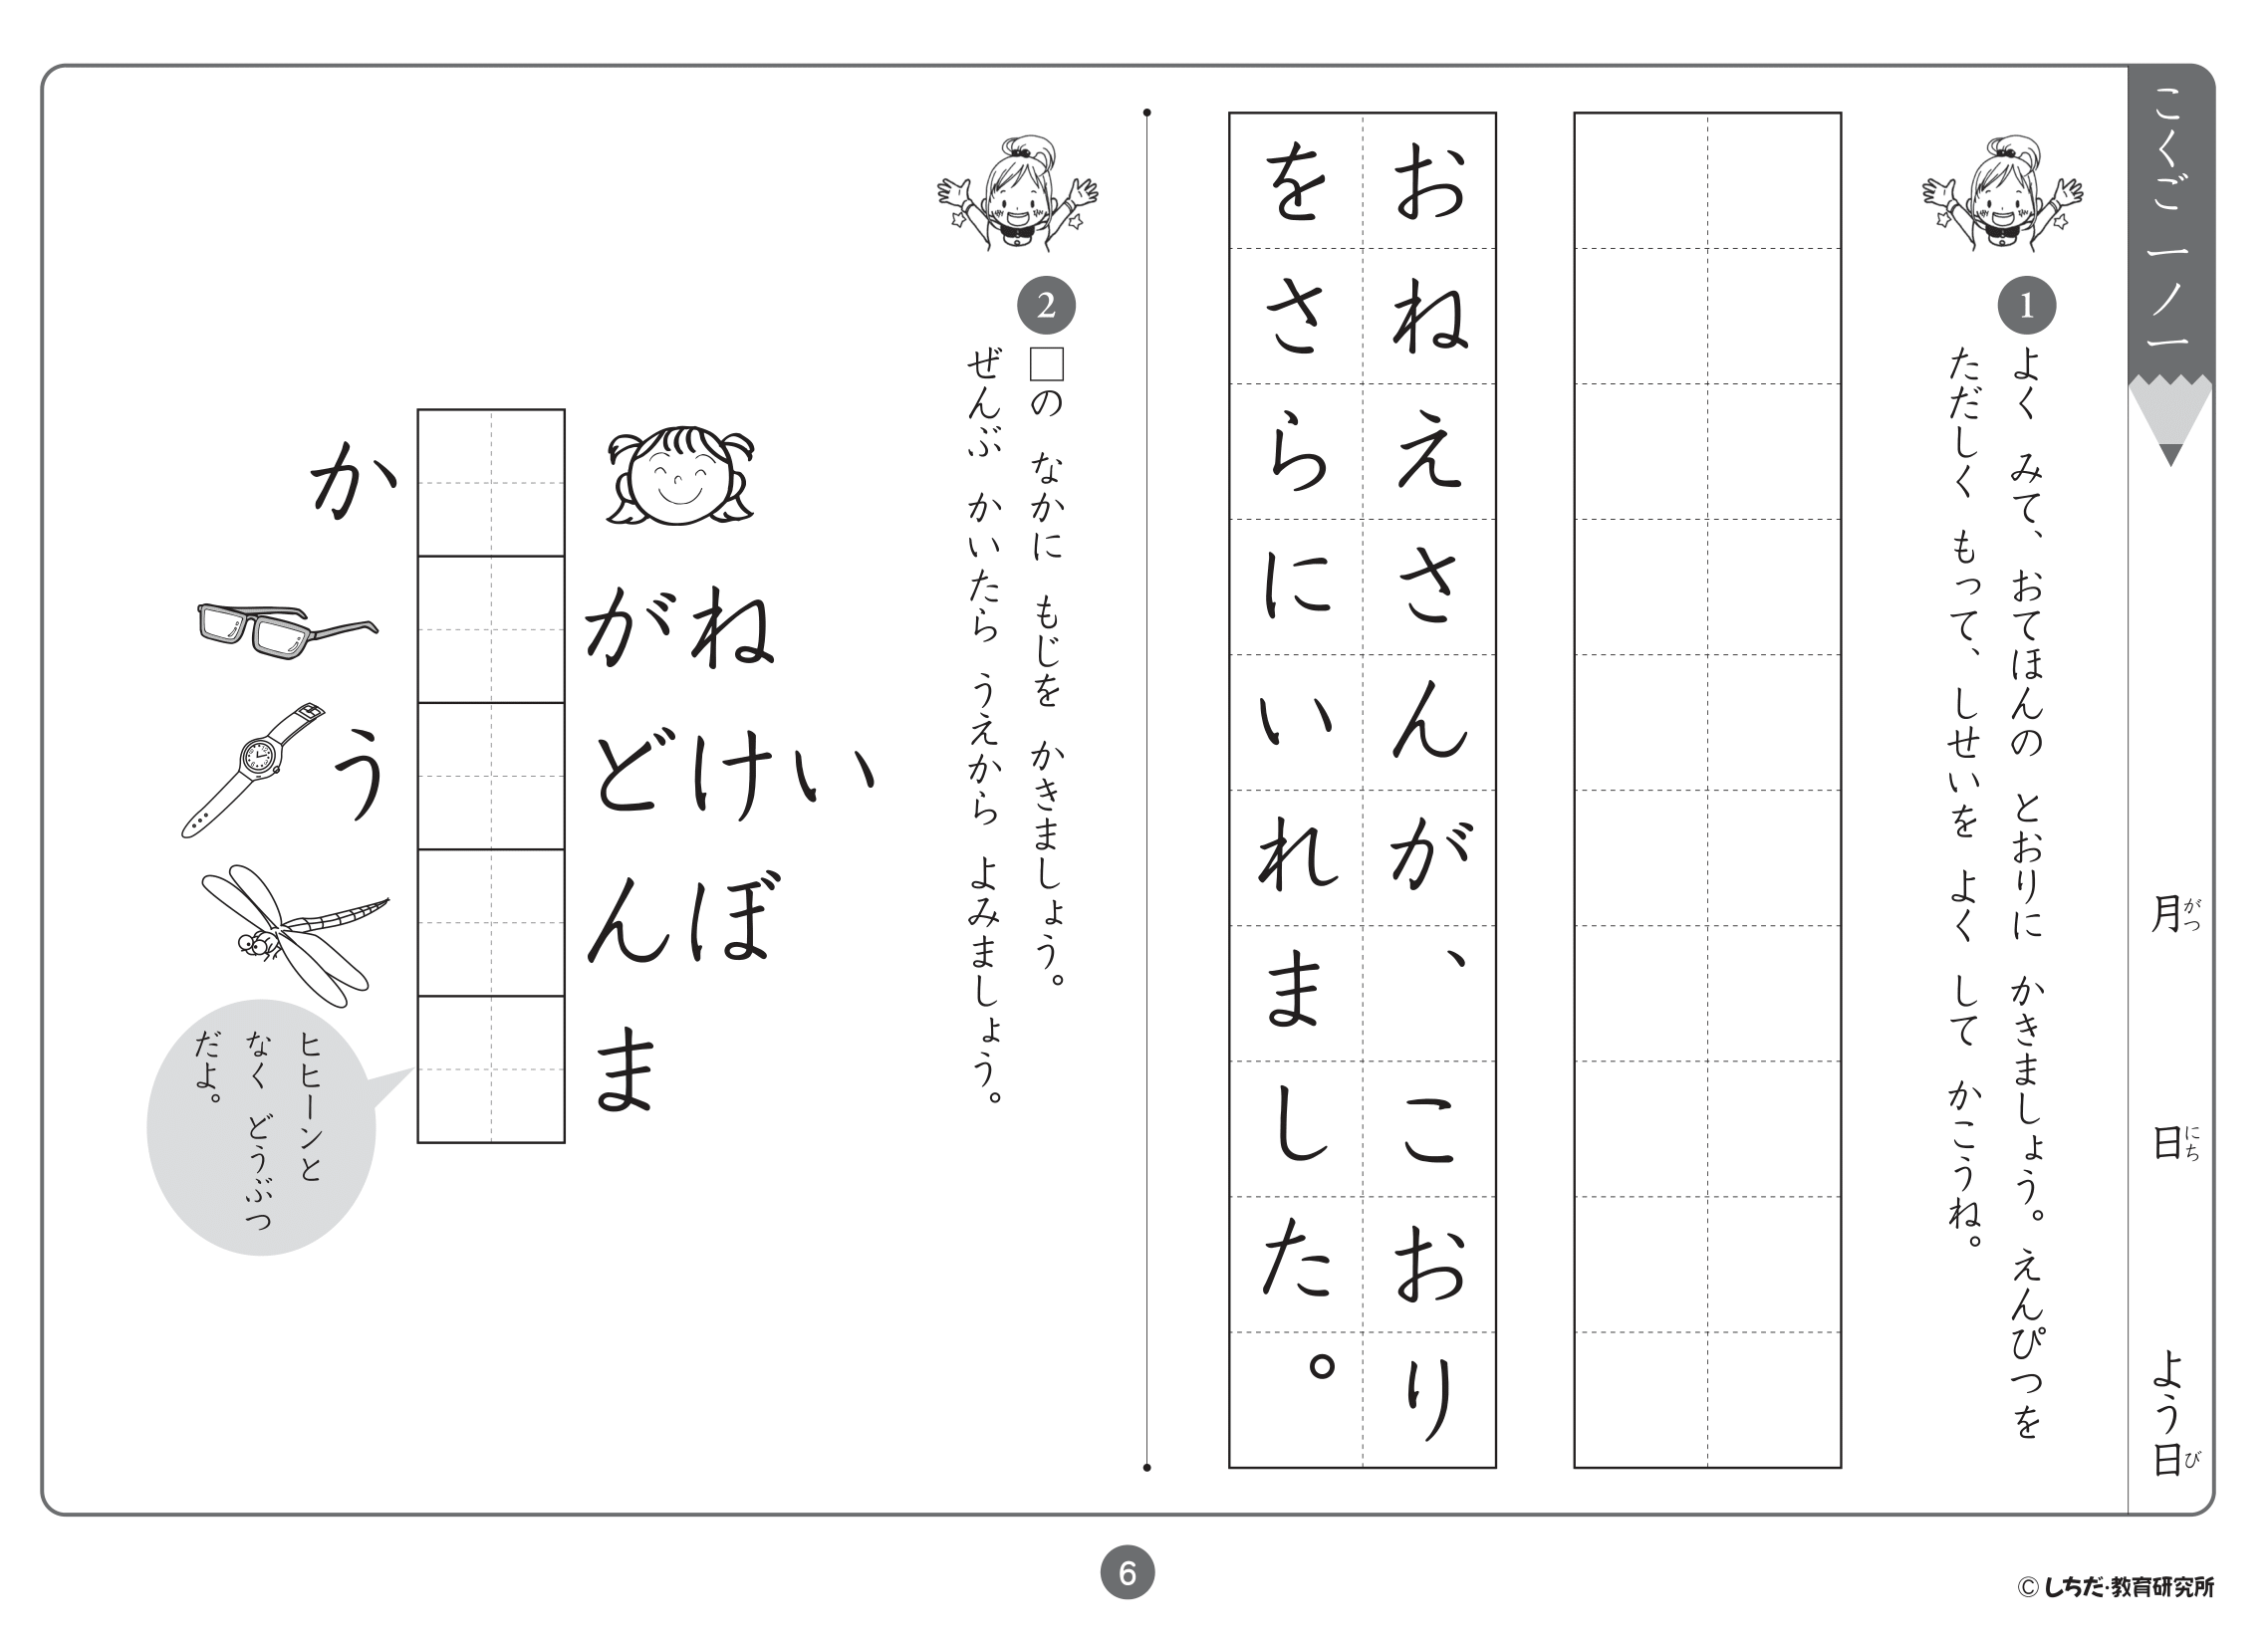 こくご 一ノ一
月 がつ
日 にち
よう日 び
1
よく みて、おてほんの とおりに かきましょう。えんぴつを
ただしく もって、しせいを よく して かこうね。
おねえさんが、こおり
をさらにいれました。
2
□の なかに もじを かきましょう。
ぜんぶ かいたら うえから よみましょう。
か
がね
う どけい
んぼ
ま
ヒヒーンと
なく どうぶつ
だよ。
6
© しちだ・教育研究所